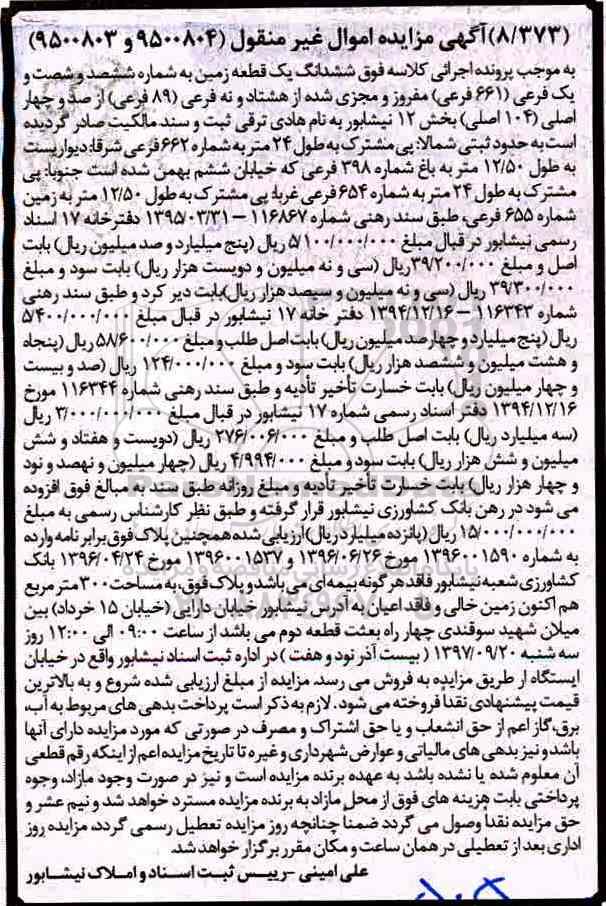 (۸/۳۷۳)آگهی مزایده اموال غیر منقول (۹۵۰۰۸۰۴ و ۹۵۰۰۸۰۳)
به موجب پرونده اجرائی کلاسه فوق ششدانگ یک قطعه زمین به شماره ششصد و شصت و
یک فرعی (۶۶۱ فرعی) مفروز و مجزی شده از هشتاد و نه فرعی (۸۹ فرعی) از صد و چهار
اصلی (۱۰۴ اصلی) بخش ۱۲ نیشابور به نام هادی ترقی ثبت و سند مالکیت صادر گردیده
است به حدود ثبتی شمالا: پی مشترک به طول ۲۴ متر به شماره ۶۶۲ فرعی شرقا: دیواریست
به طول ۱۲/۵۰ متر به باغ شماره ۳۹۸ فرعی که خیابان ششم بهمن شده است جنوبا: پی
مشترک به طول ۲۴ متر به شماره ۶۵۴ فرعی غربا: پی مشترک به طول ۱۲/۵۰ متر به زمین
شماره ۶۵۵ فرعی، طبق سند رهنی شماره ۱۱۶۸۶۷ – ۱۳۹۵/۰۳/۳۱ دفترخانه ۱۷ اسناد
رسمی نیشابور در قبال مبلغ ۵/۱۰۰/۰۰۰/۰۰۰ ریال (پنج میلیارد و صد میلیون ریال) بابت
اصل و مبلغ ۳۹/۲۰۰/۰۰۰ریال (سی و نه میلیون و دویست هزار ریال) بابت سود و مبلغ
۳۹/۳۰۰/۰۰۰ ریال (سی و نه میلیون و سیصد هزار ریال)بابت دیر کرد و طبق سند رهنی
شماره ۱۱۶۳۴۳ – ۱۳۹۴/۱۲/۱۶ دفتر خانه ۱۷ نیشابور در قبال مبلغ ۵/۴۰۰/۰۰۰/۰۰۰
ریال (پنج میلیارد و چهارصد میلیون ریال) بابت اصل طلب و مبلغ ۵۸/۶۰۰/۰۰۰ ریال (پنجاه
و هشت میلیون و ششصد هزار ریال) بابت سود و مبلغ ۱۲۴/۰۰۰/۰۰۰ ریال (صد و بیست
و چهار میلیون ریال) بابت خسارت تأخیر تأدیه و طبق سند رهنی شماره ۱۱۶۳۴۴ مورخ
۱۳۹۴/۱۲/۱۶ دفتر اسناد رسمی شماره ۱۷ نیشابور در قبال مبلغ ۳/۰۰۰/۰۰۰/۰۰۰ ریال
(سه میلیارد ریال) بابت اصل طلب و مبلغ ۲۷۶/۰۰۶/۰۰۰ ریال (دویست و هفتاد و شش
میلیون و شش هزار ریال) بابت سود و مبلغ ۴/۹۹۴/۰۰۰ ریال (چهار میلیون و نهصد و نود
و چهار هزار ریال) بابت خسارت تأخیر تأدیه و مبلغ روزانه طبق سند به مبالغ فوق افزوده
می شود در رهن بانک کشاورزی نیشابور قرار گرفته و طبق نظر کارشناس رسمی به مبلغ
۱۵/۰۰۰/۰۰۰/۰۰۰ ریال (پانزده میلیارد ریال) ارزیابی شده همچنین پلاک فوق برابر نامه وارده
به شماره ۱۳۹۶۰۰۱۵۹۰ مورخ ۱۳۹۶/۰۶/۲۶ و ۱۳۹۶۰۰۱۵۳۷ مورخ ۱۳۹۶/۰۴/۲۴ بانک
کشاورزی شعبه نیشابور فاقد هر گونه بیمه ای می باشد و پلاک فوق، به مساحت ۳۰۰ متر مربع
هم اکنون زمین خالی و فاقد اعیان به آدرس نیشابور خیابان دارایی (خیابان ۱۵ خرداد) بین
میلان شهید سوقندی چهار راه بعثت قطعه دوم می باشد از ساعت ۰۹:۰۰ الی ۱۲:۰۰ روز
سه شنبه ۱۳۹۷/۰۹/۲۰ ( بیست آذر نود و هفت ) در اداره ثبت اسناد نیشابور واقع در خیابان
ایستگاه از طریق مزایده به فروش می رسد. مزایده از مبلغ ارزیابی شده شروع و به بالاترین
قیمت پیشنهادی نقداً فروخته می شود. لازم به ذکر است پرداخت بدهی های مربوط به آب،
برق، گاز اعم از حق انشعاب و یا حق اشتراک و مصرف در صورتی که مورد مزایده دارای آنها
باشد و نیز بدهی های مالیاتی و عوارض شهرداری و غیره تا تاریخ مزایده اعم از اینکه رقم قطعی
آن معلوم شده یا نشده باشد به عهده برنده مزایده است و نیز در صورت وجود مازاد، وجوه
پرداختی بابت هزینه های فوق از محل مازاد به برنده مزایده مسترد خواهد شد و نیم عشر و
حق مزایده نقداً وصول می گردد ضمناً چنانچه روز مزایده تعطیل رسمی گردد، مزایده روز
اداری بعد از تعطیلی در همان ساعت و مکان مقرر برگزار خواهد شد.
علی امینی -رییس ثبت اسناد و املاک نیشابور